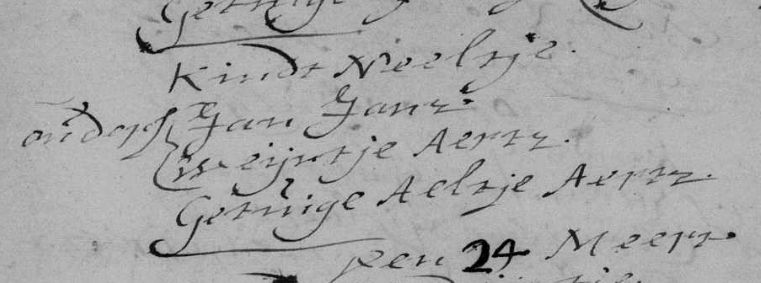 Getuige
Kindt Neeltje.
ouders Jan Janz
Weijntje Aertz.
Getuige Aeltje Aertz.
Den 24 Meert